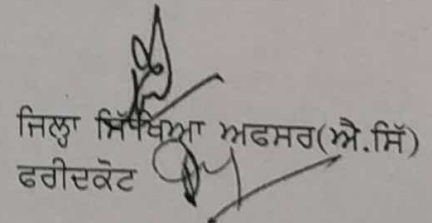 ਜਿਲ੍ਹਾ ਸਿੱਖਿਆ ਅਫਸਰ(ਐ.ਸਿੱ)
ਫਰੀਦਕੋਟ